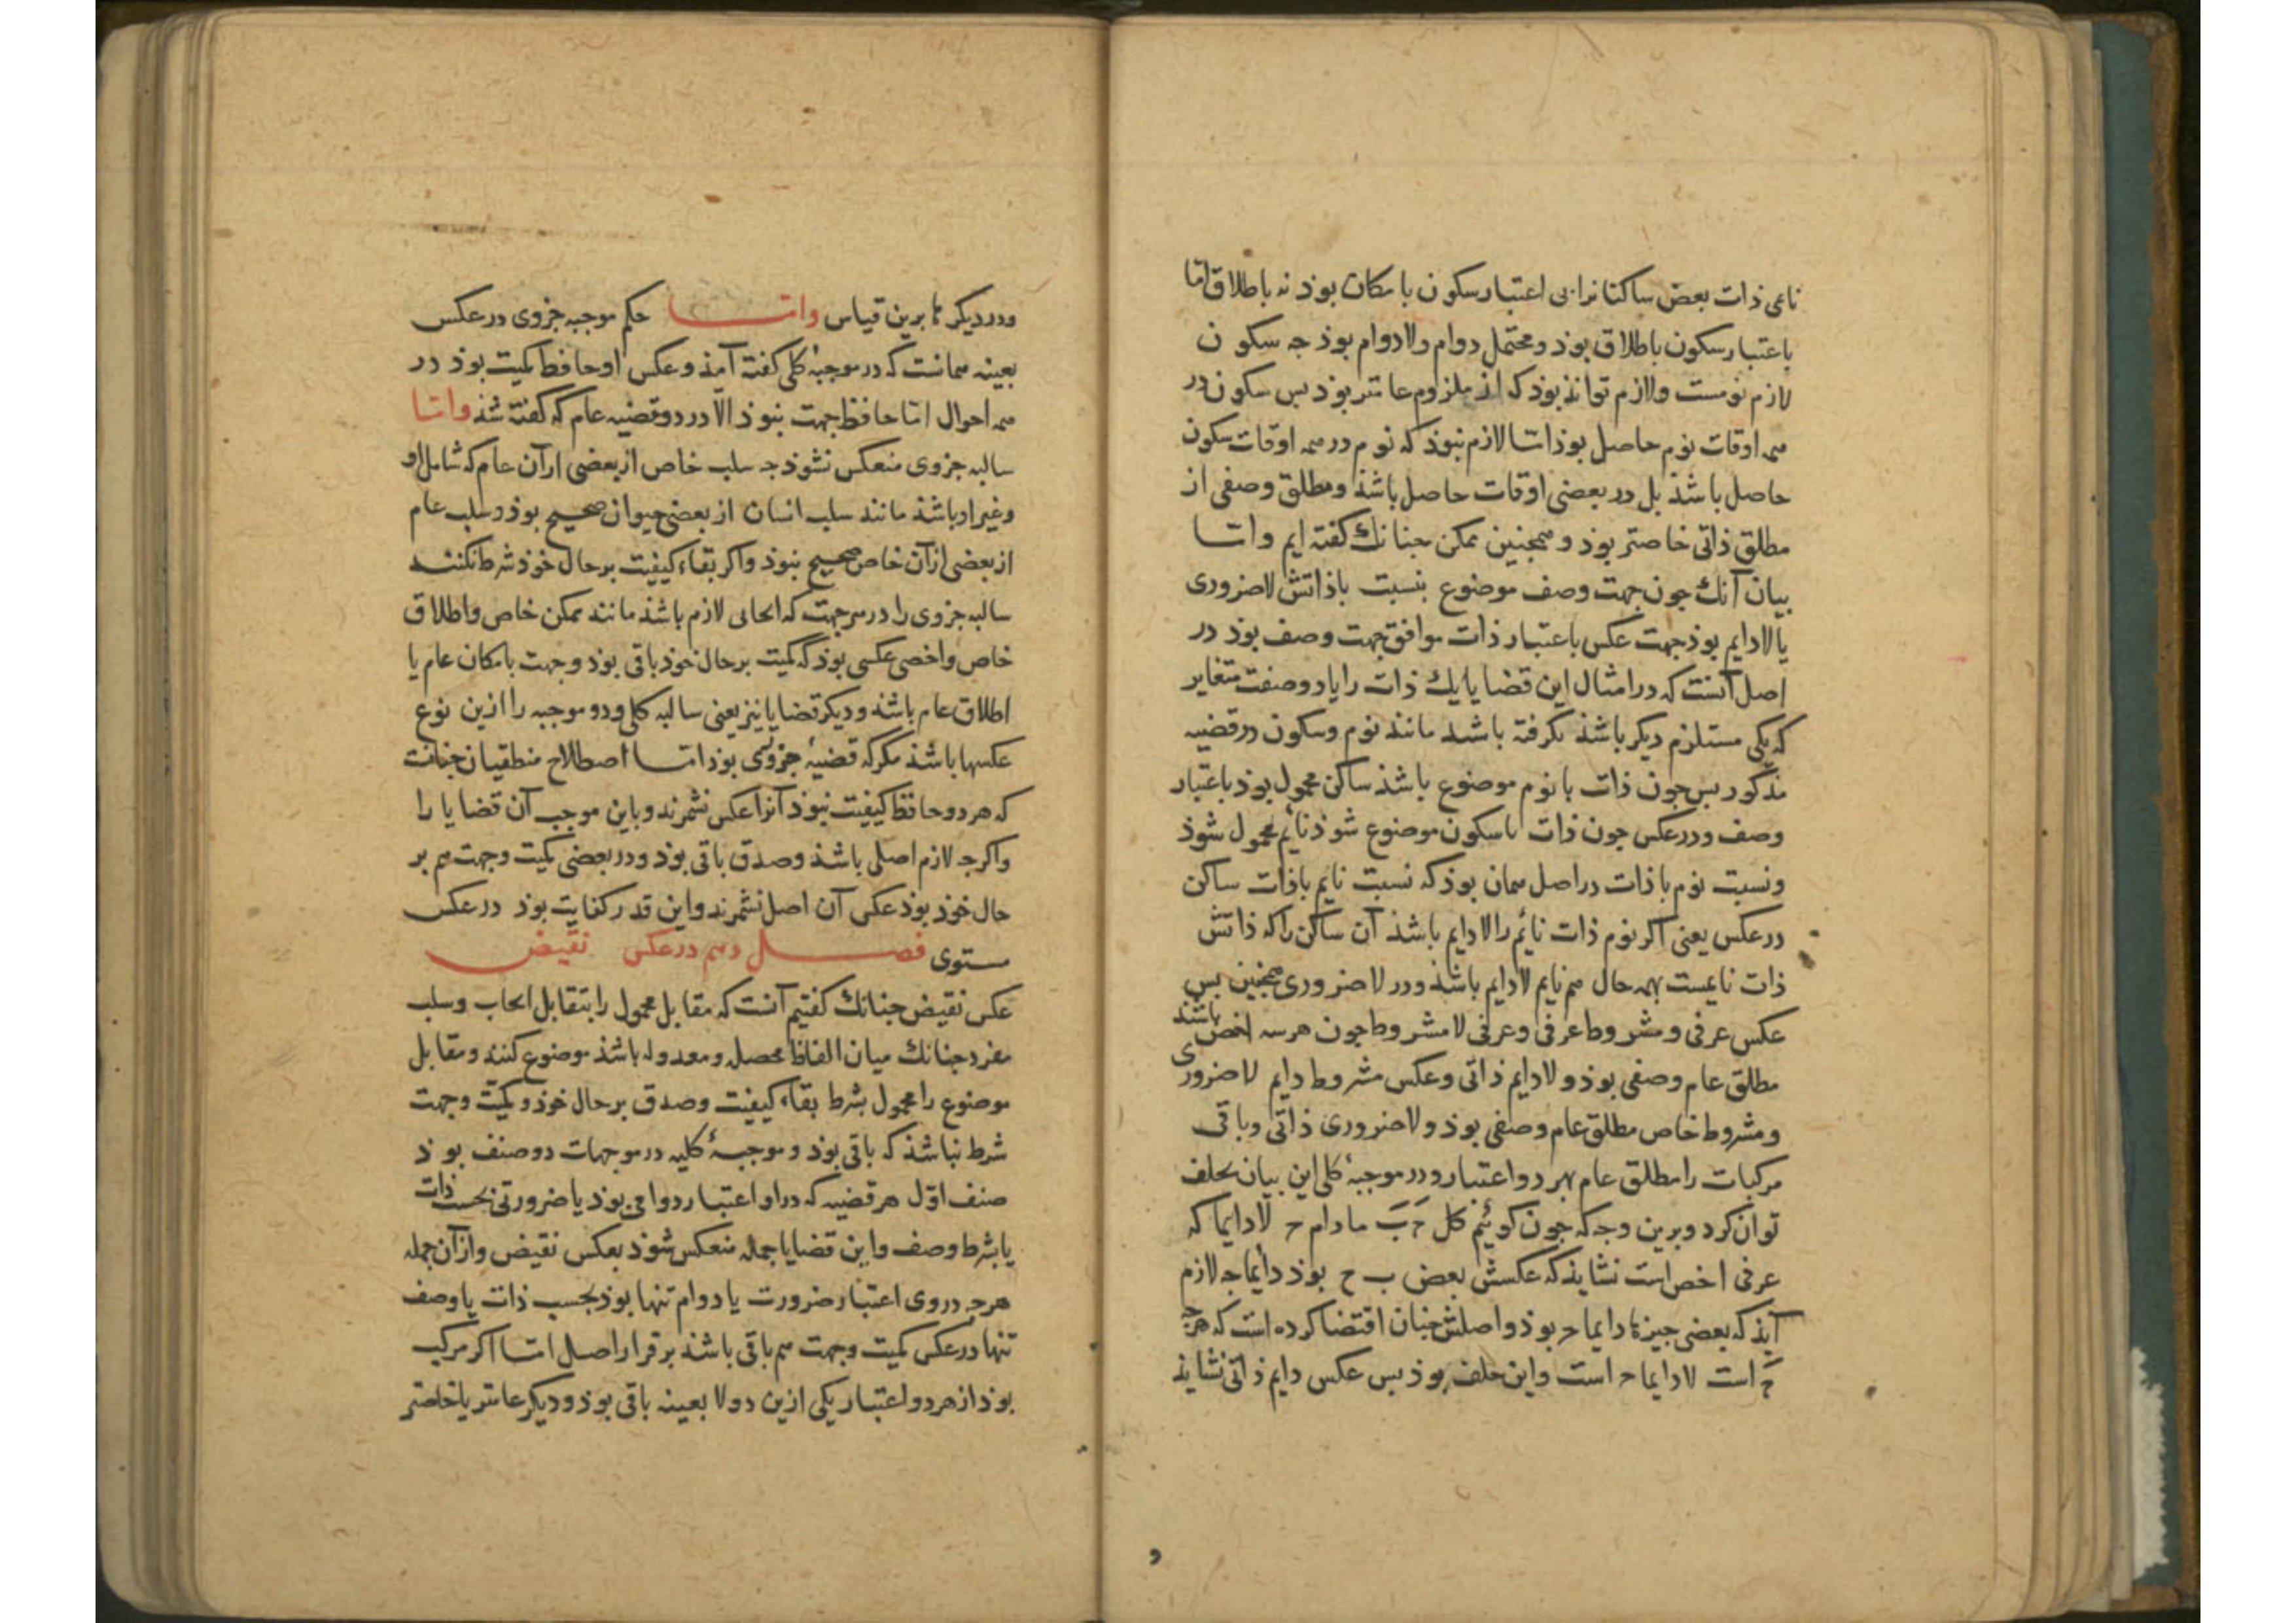 نامی ذات بعض ساکنانرا بی اعتبار سکون بامکان بوذ نه باطلاق اما
باعتبار سکون باطلاق بوذ و محتمل دوام ولادوام بوذ جه سکون
لازم نومست ولازم تواند بوذ که از ملزوم عامتر بوذ بس سکون در
همه اوقات نوم حاصل بوذ امّا لازم نبوذ که نوم در همه اوقات سکون
حاصل باشذ بل در بعضی اوقات حاصل باشذ ومطلق وصفی از
مطلق ذاتی خاصتر بوذ و همجنین ممکن جنانك کفته ایم وامّا
بیان آنك جون جهت وصف موضوع بنسبت باذاتش لاضروری
یا لادایم بوذ جهت عکس باعتبار ذات موافق جهت وصف بوذ در
اصل آنست که در امثال این قضایا یك ذات را با دو صفت متغایر
که یکی مستلزم دیکر باشذ بکرفته باشد مانند نوم وسکون در قضیه
مذکور بس جون ذات با نوم موضوع باشذ ساکن محمول بوذ باعتبار
وصف ودر عکس جون ذات با سکون موضوع شوذ نائم محمول شوذ
ونسبت نوم با ذات در اصل همان بوذ که نسبت نایم باذات ساکن
در عکس یعنی اکر نوم ذات نائم را لادایم باشذ آن ساکن را که ذاتش
ذات نایمست بهمه حال هم نایم لادایم باشذ ودر لاضروری همجنین بس
عکس عرفی ومشروط عرفی وعرفی لامشروط جون هر سه اخص باشند
مطلق عام وصفی بوذ ولادایم ذاتی وعکس مشروط دایم لاضروری
ومشروط خاص مطلق عام وصفی بوذ ولاضروری ذاتی وباقی
مرکبات را مطلق عام بهر دو اعتبار ودر موجبهٔ کلی این بیان بخلف
توان کرد وبرین وجه که جون کوئیم کل ح ب مادام ح لادایما که
عرفی اخص است نشایذ که عکسش بعض ب ح بوذ دائما جه لازم
آیذ که بعضی جیزها دایما ح بوذ واصلش جنان اقتضا کرده است که هرجه
ح است لادایما ح است واین خلف بوذ بس عکس دایم ذاتی نشایذ
ودر دیکرها برین قیاس وامّا حکم موجبه جزوی در عکس
بعینه همانست که در موجبهٔ کلی کفته آمذ وعکس او حافظ کمیت بوذ در
همه احوال امّا حافظ جهت نبوذ الّا در دو قضیه عام که کفته شذ وامّا
سالبه جزوی منعکس نشوذ جه سلب خاص از بعضی از آن عام که شامل او
وغیر او باشذ مانند سلب انسان از بعضی حیوان صحیح بوذ وسلب عام
از بعضی از آن خاص صحیح نبوذ واکر بقاء کیفیت بر حال خوذ شرط نکنند
سالبه جزوی را در هر جهت که ایجابی لازم باشذ مانند ممکن خاص واطلاق
خاص واخصی عکسی بوذ که کمیت بر حال خوذ باقی بوذ وجهت بامکان عام یا
اطلاق عام باشذ ودیکر قضایا نیز یعنی سالبه کلی ودو موجبه را ازین نوع
عکسها باشذ مکر که قضیهٔ جزوی بوذ امّا اصطلاح منطقیان جنانست
که هر دو حافظ کیفیت نبوذ آنرا عکس نشمرند وباین موجب آن قضایا را
واکرجه لازم اصلی باشذ وصدق باقی بوذ ودر بعضی کمیت وجهت هم بر
حال خوذ بوذ عکس آن اصل نشمرند واین قدر کفایت بوذ در عکس
مستوی فصل دهم در عکس نقیض
عکس نقیض جنانك کفتیم آنست که مقابل محمول را بتقابل ایجاب وسلب
مفرد جنانك میان الفاظ محصله ومعدوله باشذ موضوع کنند ومقابل
موضوع را محمول بشرط بقاء کیفیت وصدق بر حال خوذ وکمیت وجهت
شرط نباشذ که باقی بوذ وموجبهٔ کلیه در موجهات دو صنف بوذ
صنف اوّل هر قضیه که در او اعتبار دوامی بوذ یا ضرورتی بحسب ذات
یا بشرط وصف واین قضایا جمله منعکس شوذ بعکس نقیض واز آن جمله
هرجه در وی اعتبار ضرورت یا دوام تنها بوذ بحسب ذات یا وصف
تنها در عکس کمیت وجهت هم باقی باشذ بر قرار اصل امّا اکر مرکب
بوذ از هر دو اعتبار یکی ازین دو لا بعینه باقی بوذ ودیکر عامتر یا خاصتر